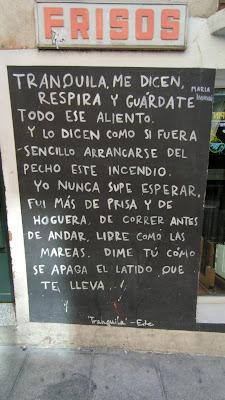 FRISOS
TRANQUILA, ME DICEN,
MARIA
RESPIRA Y GUÁRDATE
TODO ESE ALIENTO.
Y LO DICEN COMO SI FUERA
SENCILLO ARRANCARSE DEL
PECHO ESTE INCENDIO.
YO NUNCA SUPE ESPERAR,
FUI MÁS DE PRISA Y DE
HOGUERA, DE CORRER ANTES
DE ANDAR, LIBRE COMO LAS
MAREAS. DIME TÚ CÓMO
SE APAGA EL LATIDO QUE
TE LLEVA...
"Tranquila" - Ede